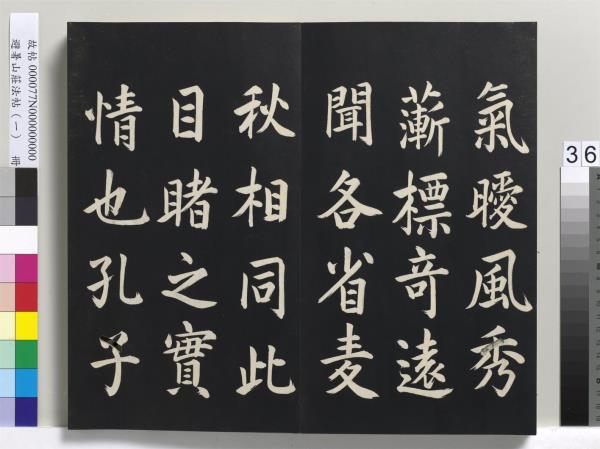 氣曖風秀
蔪標奇遠
聞各省麦
秋相同此
目睹之實
情也孔子
故帖 000077N000000000
避暑山莊法帖（一） 冊
36